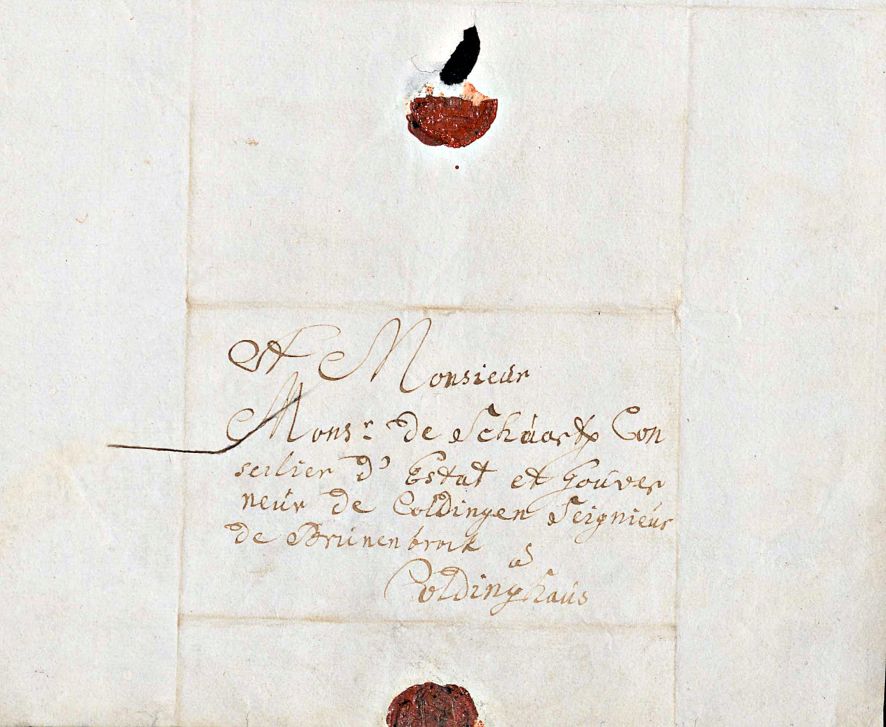 A Monsieur
Monsr de Schúartz Con
seilier d' Estat et Goúver
neúr de Coldingen Seignieúr
de Brúnenbrock
a
Coldinghaús